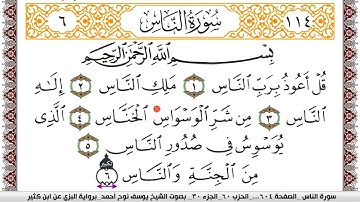 ٦ سُورَةُ النَّاسِ ١١٤
بِسْمِ اللَّهِ الرَّحْمَٰنِ الرَّحِيمِ
قُلْ أَعُوذُ بِرَبِّ النَّاسِ ١ مَلِكِ النَّاسِ ٢ إِلَٰهِ
النَّاسِ ٣ مِن شَرِّ الْوَسْوَاسِ الْخَنَّاسِ ٤ الَّذِى
يُوَسْوِسُ فِى صُدُورِ النَّاسِ ٥
مِنَ الْجِنَّةِ وَالنَّاسِ ٦
سورة الناس _الصفحة ٦٠٤_ الحزب ٦٠_الجزء ٣٠_ بصوت الشيخ يوسف نوح أحمد_برواية البزي عن ابن كثير